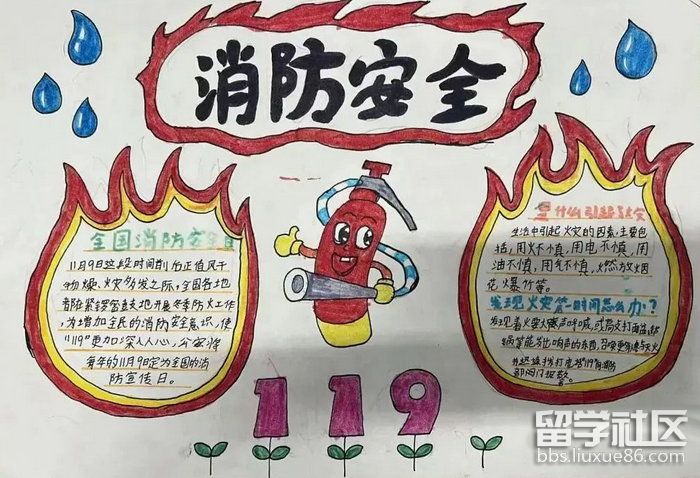 消防安全
全国消防安全日
11月9日这段时间前后正值风干
物燥、火灾多发之际，全国各地
都在紧锣密鼓地开展冬季防火工作，
为增加全民的消防安全意识，使
"119"更加深入人心，公安部
每年的11月9日定为全国的消
防宣传日。
是什么引起火灾
生活中引起火灾的因素，主要包
括，用火不慎，用电不慎，用
油不慎，用气不慎，燃放烟
花爆竹等。
发现火灾第一时间怎么办？
发现着火要大声呼喊，或
能发出响声的东西，
119
留学社区
bbs.liuxue86.com